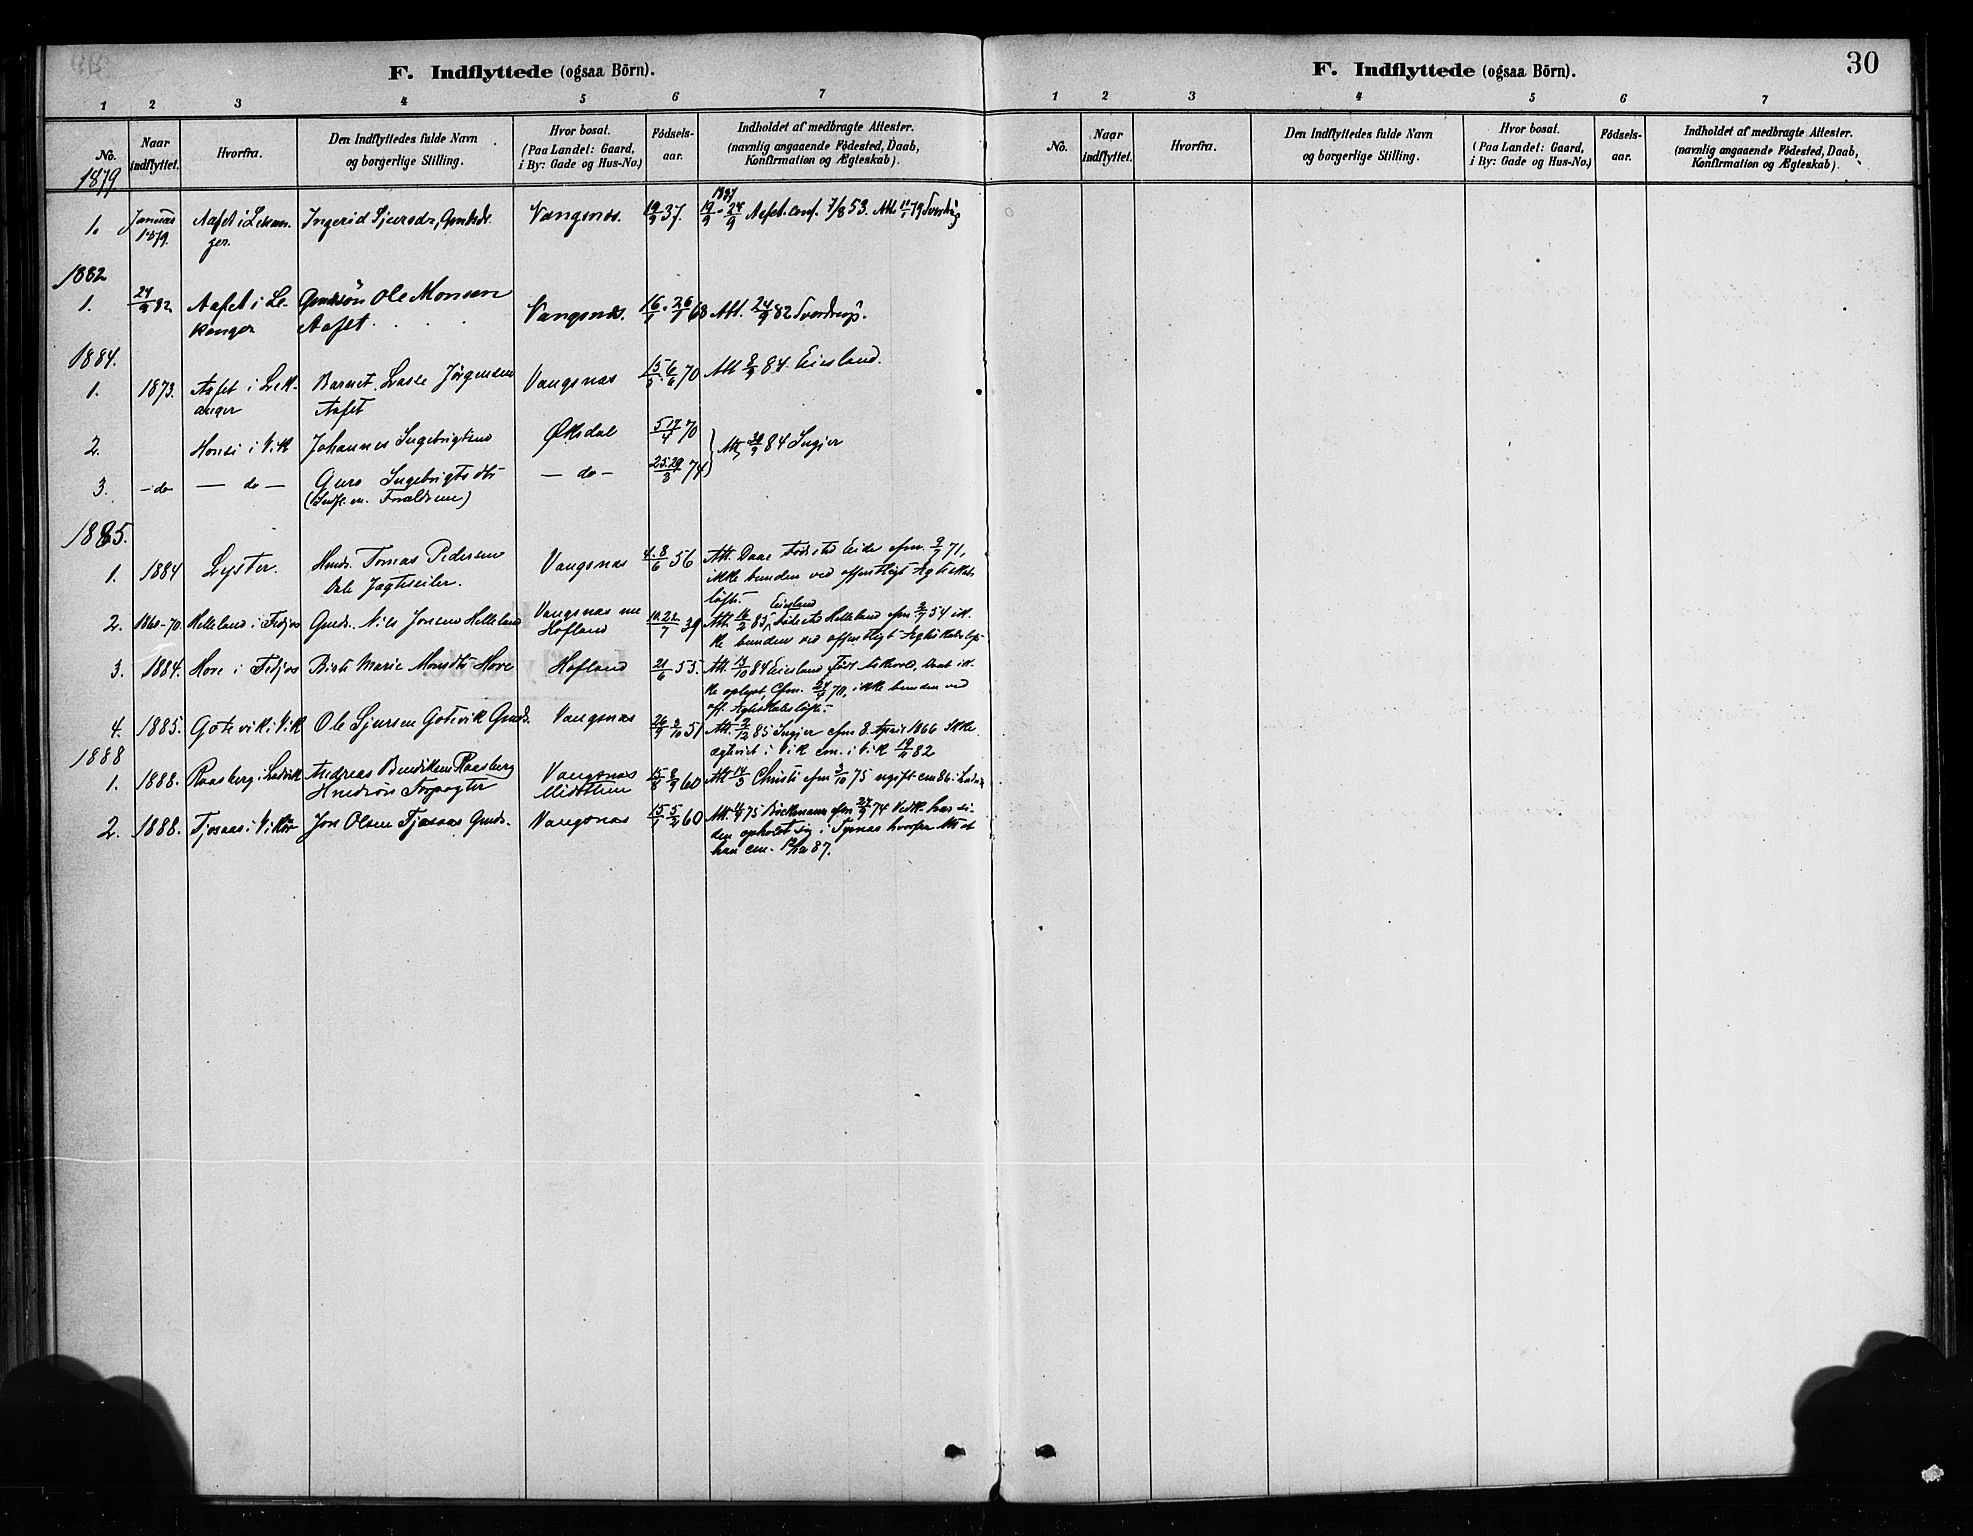 F. Indflyttede (ogsaa Börn).
1 2 3 4 5 6 7
No. Naar indflyttet. Hvorfra. Den Indflyttedes fulde Navn og borgerlige Stilling. Hvor bosat. (Paa Landet: Gaard, i By: Gade og Hus-No.) Födsels-aar. Indholdet af medbragte Attester. (navnlig angaaende Födested, Daab, Konfirmation og Ægteskab).
1879
1. Januar 1879. Aafet i Lekanger Ingerid Sjursdr, Vangsnes. 19/9 37. 1837 19/9 - 24/9 Aafet. conf. 7/8 53. Att. 11/1 79 Sverdrup
1882
1. 24/9 82 Aafet i Lekanger Ole Monsen Aafet. Vangsnes. 16/1 - 26/1 68 Att. 24/9 82 Sverdrup.
1884.
1. 1873. Aafet i Lekanger Barnet Lasse Jörgensen Aafet Vangsnæs 6/6 70 Att 8/9 84. Eiesland.
2. i Vik Johannes Ingebrigtsen 5 17/4 70
3. -do- - do - Guro Ingebrigtsdtr (Indfl. m. Forældrene) - do - 25. 29/3 74 } Att. 84 Ingier
1885.
1. 1884 Lyster. Tomas Pedersen Dale Jægtseiler. Vangsnæs 4. 8/6 56 Att. Daae Födested Eide cfm. 71, ikke bunden ved offentligt Ægteskabs löfte.
2. 1860-70. Helleland i Fedjos Gmds. Nils Jonsen Helleland Vangsnæs nu Hofland 10. 22/7 39 Att. 16/2 85, Eiesland Födested Helleland cfm 2/7 54 ikke bunden ved offentligt Ægteskabslöfte
3. 1884. Hove i Fedjos Birte Marie Hove Hofland 21/6 55. Att. 84 Eiesland, Daab ikke oplyst, Cfm. 70, ikke bunden ved off. Ægteskabslöfte.
4. 1885. Gotevik i Vik Ole Sjursen Gotevik Gmds. Vangsnæs 26/9 3/10 51 Att. 2/12 85 Ingier cfm 8. April 1866 ikke ægteviet i Vik cm. i Vik 82
1888
1. 1888. Raasberg i Ladvik Andreas Bendiksen Raasberg Vangsnæs 15/8 8/9 60 Att 14/3 Christi cfm 3/10 75 ugift cm 86 i Ladvik
2. 1888. Tjosaas i Vikör Jon Olsen Tjosaas Gmds. Vangsnæs 15/1 5/2 60 Att. 75 cfm 27/9 74 Vedk. har siden opholdt sig i hvorfra Att at han cm. 87.
30
F. Indflyttede (ogsaa Börn).
1 2 3 4 5 6 7
No. Naar indflyttet. Hvorfra. Den Indflyttedes fulde Navn og borgerlige Stilling. Hvor bosat. (Paa Landet: Gaard, i By: Gade og Hus-No.) Födsels-aar. Indholdet af medbragte Attester. (navnlig angaaende Födested, Daab, Konfirmation og Ægteskab).